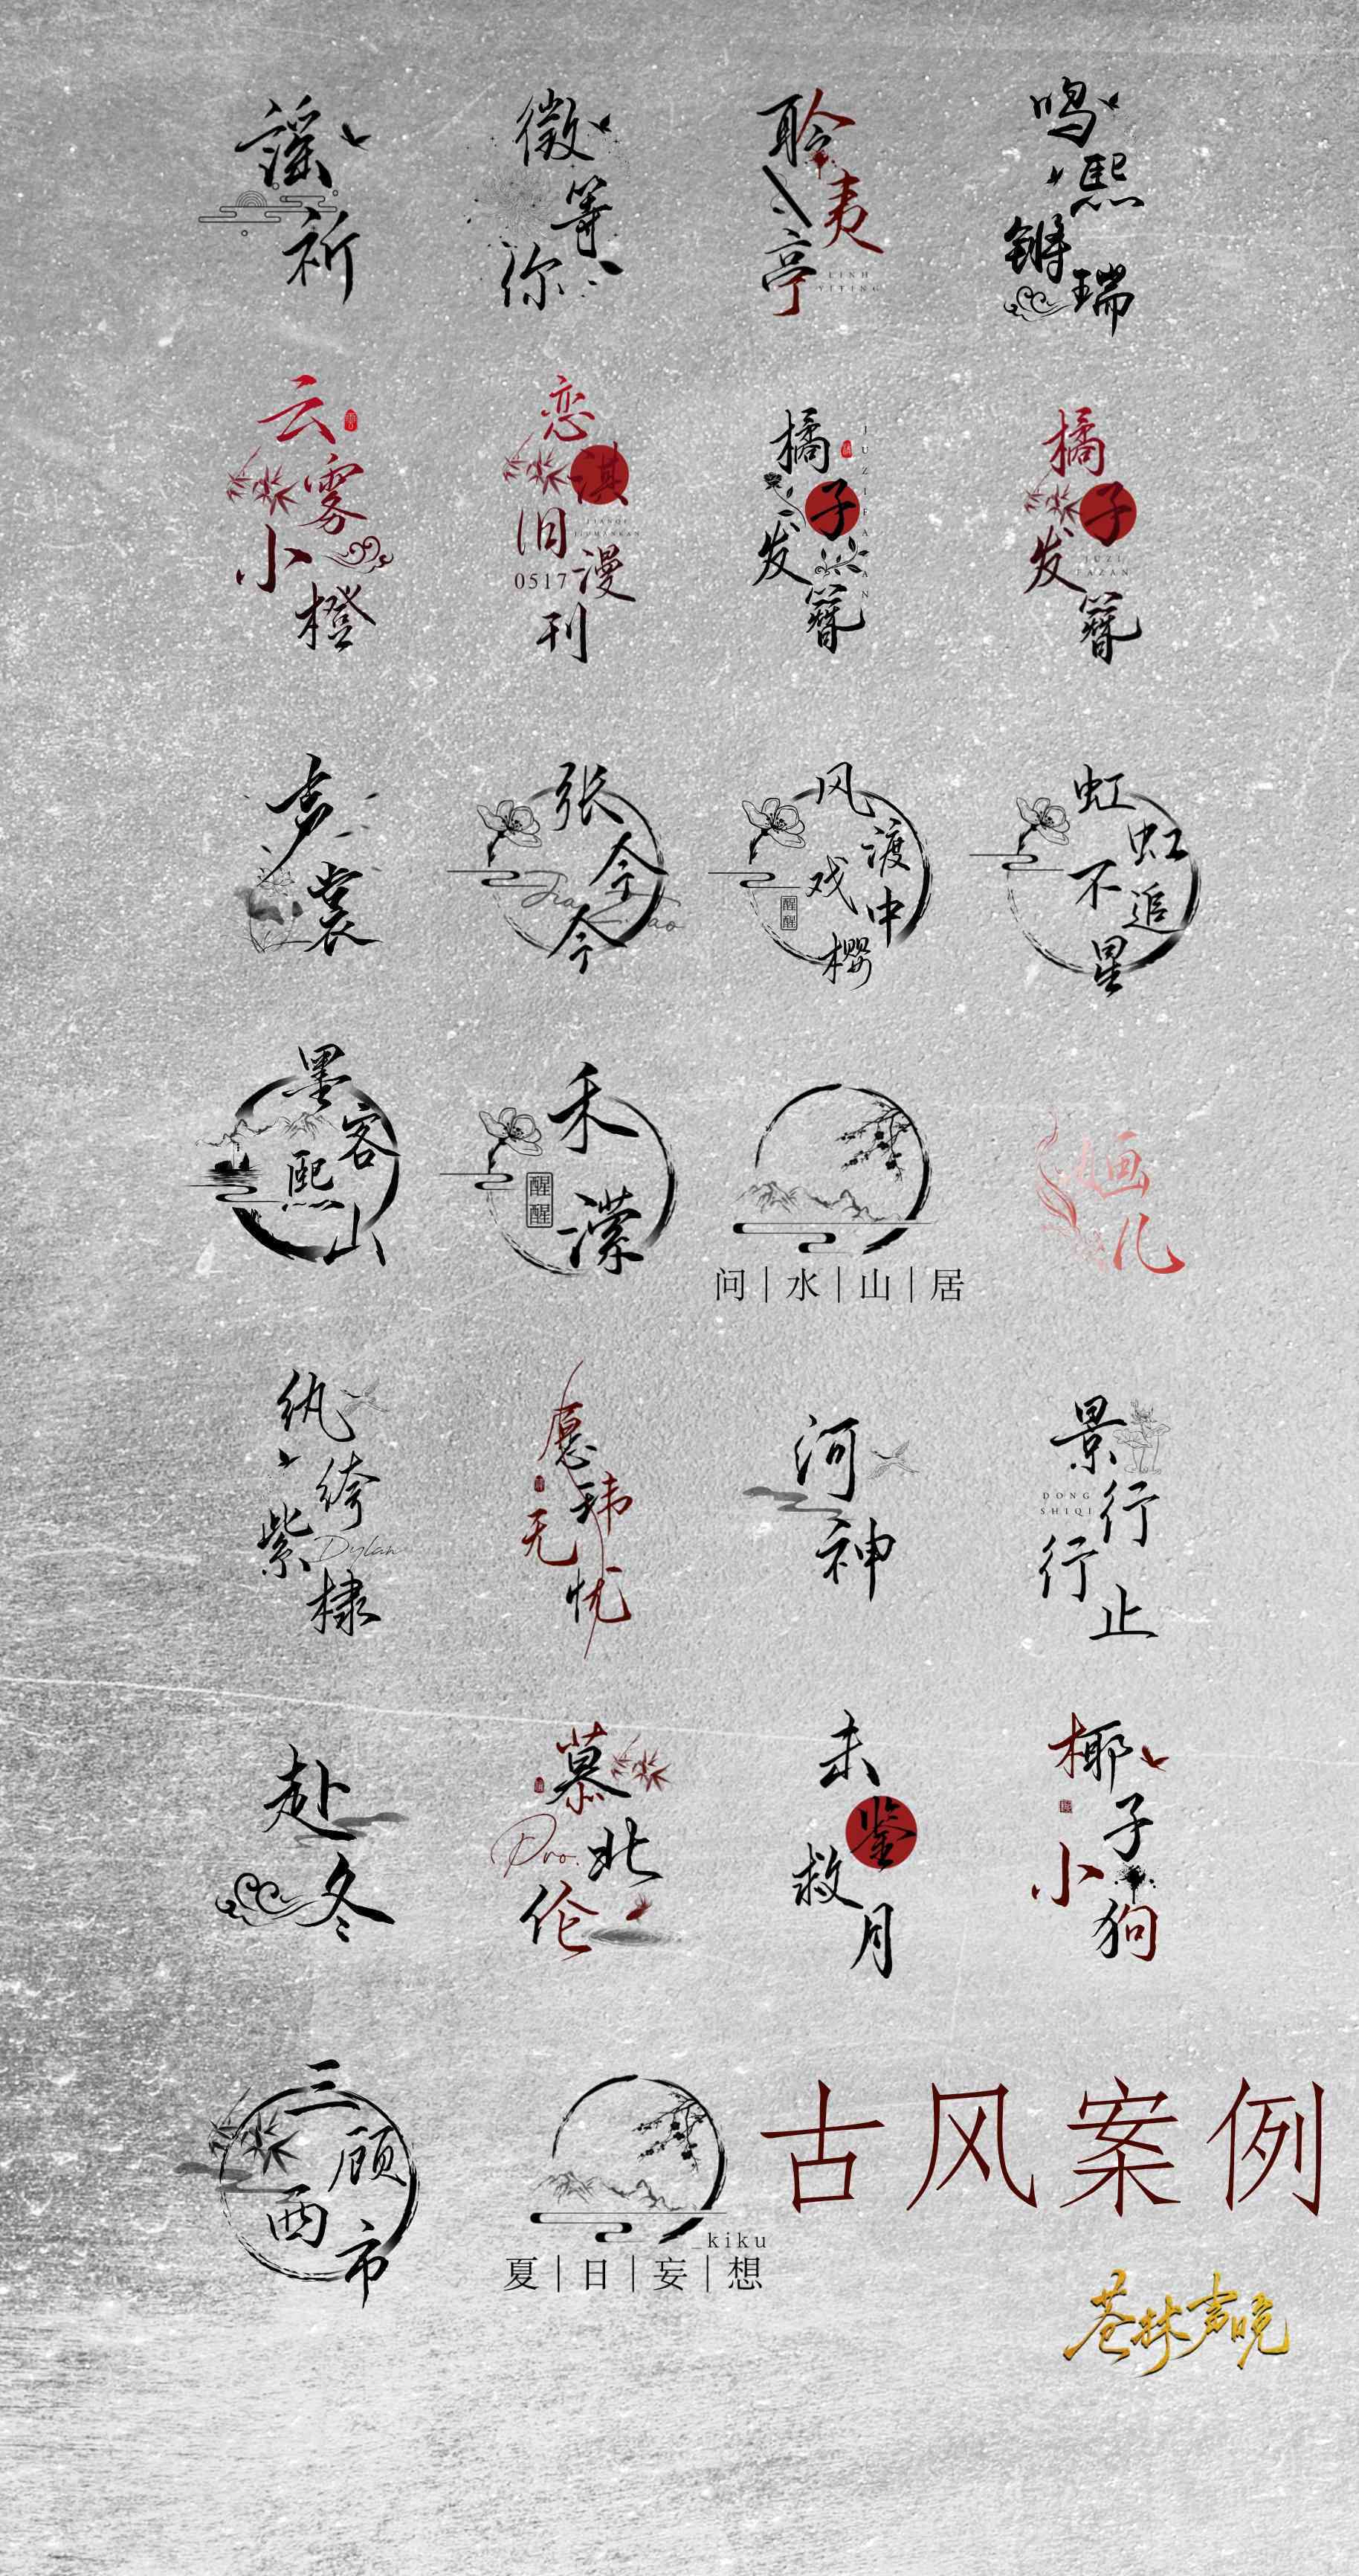 谣祈
徵等你
聆夷亭
LINH
YITING
鸣熙锵瑞
云雾小橙
恋淇旧漫刊
LIANQI
JIUMANKAN
0517
橘子发簪
JUZIFAZAN
橘子发簪
JUZI
FAZAN
声裳
张令令
风渡戏中樱
醒醒
虹虹不追星
墨客熙山
禾潆
醒醒
问|水|山|居
画儿
纨绔紫棣
Dylan
愿玮无忧
河神
景行行止
DONG
SHIQI
赴冬
慕北伦
Pro.
未鉴救月
椰子小狗
三顾西市
_kiku
夏|日|妄|想
古风案例
苍林声晚